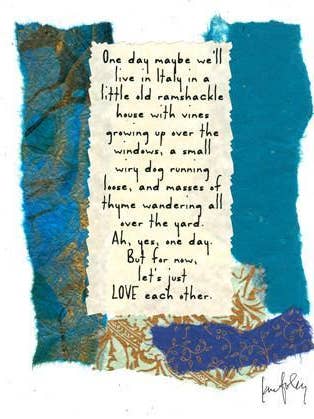 One day maybe we'll
live in Italy in a
little old ramshackle
house with vines
growing up over the
windows, a small
wiry dog running
loose, and masses of
thyme wandering all
over the yard.
Ah, yes, one day.
But for now,
let's just
LOVE each other.